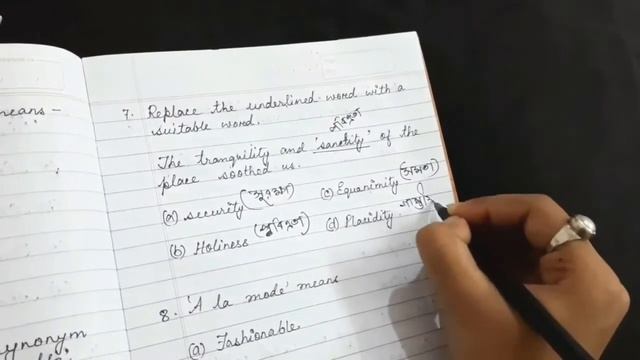 means -
7. Replace the underlined word with a
suitable word.
The tranquility and 'sanctity' of the
place soothed us.
(a) security (সুৰক্ষা)
(b) Holiness (পবিত্ৰতা)
(c) Equanimity (সমতা)
(d) Placidity
8. 'A la mode' means
(a) Fashionable
synonym